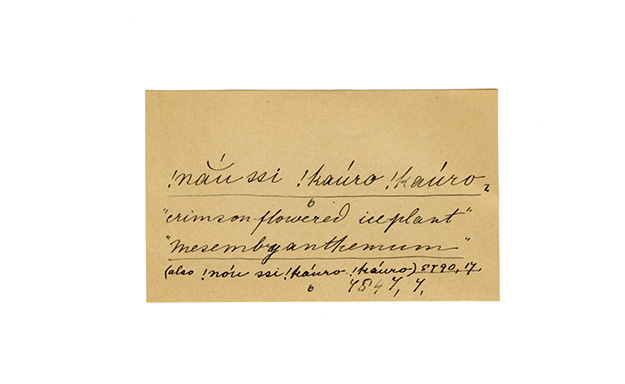 !nắu ssi !kaúro !kaúro,
"crimson flowered iceplant"
"Mesembryanthemum"
(also !nóu ssi !káuro !káuro) 8790, 17.